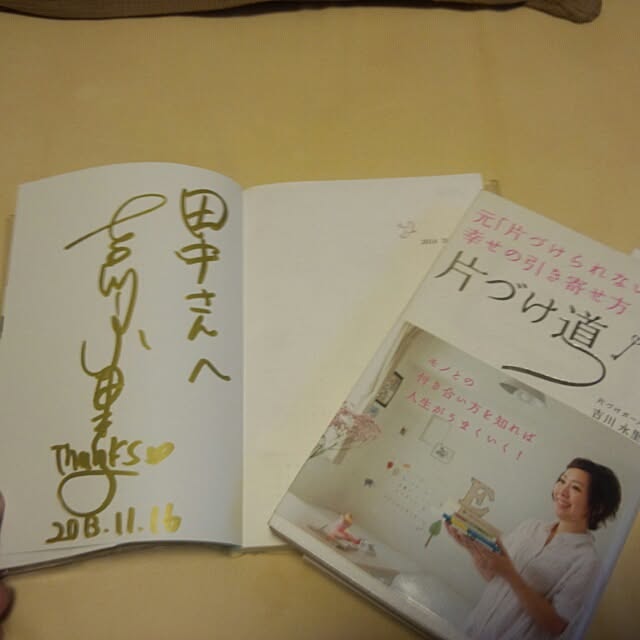 田中さんへ
Thanks♡
2013.11.16
元「片づけられない
幸せの引き寄せ方
片づけ道
吉川永里
モノとの
付き合い方を知れば
人生がうまくいく!
E